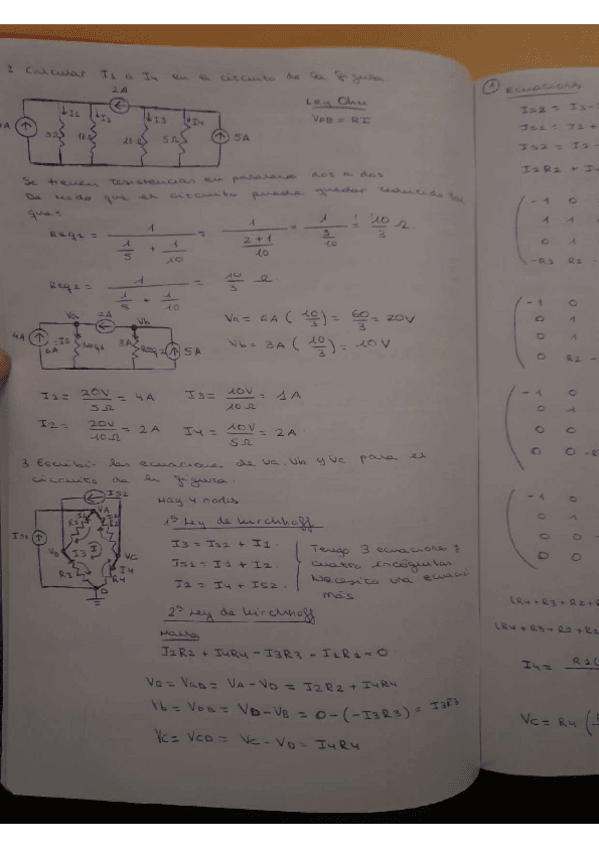 2 Calcular I1 a I4 en el circuito de la figura
2A
Ley Ohm
VAB = RI
I1 I2 I3 I4
5Ω 10Ω 10Ω 5Ω 5A
Se tienen resistencias en paralelo dos a dos
De modo que el circuito puede quedar reducido
que:
Req1 = 1 / (1/5 + 1/10) = 1 / ((2+1)/10) = 1 / (3/10) = 10/3 Ω.
Req2 = 1 / (1/5 + 1/10) = 10/3 Ω
Va 2A Vb
4A 6A Req1 3A Req2 5A
Va = 6A (10/3) = 60/3 = 20V
Vb = 3A (10/3) = 10V
I1 = 20V/5Ω = 4A I3 = 10V/10Ω = 1A
I2 = 20V/10Ω = 2A I4 = 10V/5Ω = 2A
3 Escribir las ecuaciones de Va, Vb y Vc para el
circuito de la figura.
Hay 4 nodos
IS2
VA
R1
I3 I
VC
R3 R4
I4
1ª Ley de Kirchhoff
I3 = IS2 + I1.
IS1 = I1 + I2.
I2 = I4 + IS2.
Tengo 3 ecuaciones y
cuatro incógnitas
Necesito una ecuaci
más
2ª Ley de Kirchhoff
Malla
I2R2 + I4R4 - I3R3 - I1R1 = 0
Va = VAD = VA - VD = I2R2 + I4R4
Vb = VDB = VD - VB = 0 - (-I3R3) = I3R3
Vc = VCD = VC - VD = I4R4
1 Ecuaciones
IS2 = I3 -
IS1 = I1 +
IS2 = I2 -
I2R2 + I4
-1 0
1 1
0 1
-R1 R2 -
-1 0
0 1
0 1
0 R2 -
-1 0
0 1
0 0
0 0 -R
-1 0
0 1
0 0
0 0
(R4 + R3 + R2 +
(R4 + R3 + R2 +
I4 =
VC = R4 (